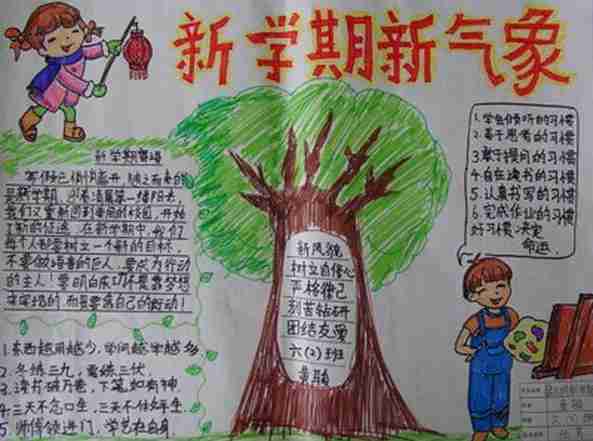 新学期新气象
新学期赛场
寒假已悄悄离开,随之而来的
是新学期,沐浴清晨第一缕阳光,
我们又重新回到美丽的校园,开始
了新的征途。在新学期中,我们
每个人都要树立一个新的目标,
不要做语言的巨人,要成为行动
的主人!要明白成功不是靠梦想
来实现的,而是要靠自己的行动!
1.东西越用越少,学问越学越多
2.冬练三九,夏练三伏。
3.读书破万卷,下笔如有神。
4.三天不念口生,三天不做手生。
5.师傅领进门,学艺在自身。
新风貌
树立自信心
严格律己
刻苦钻研
团结友爱
六(2)班
1.学会倾听的习惯
2.善于思考的习惯
3.敢于提问的习惯
4.自主读书的习惯
5.认真书写的习惯
6.完成作业的习惯
好习惯,决定
命运。